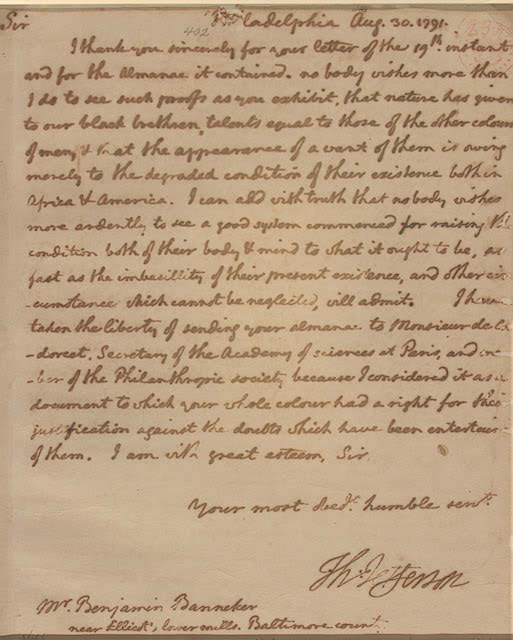 Sir Philadelphia Aug. 30. 1791.
402
I thank you sincerely for your letter of the 19th. instant
and for the Almanac it contained. no body wishes more than
I do to see such proofs as you exhibit, that nature has given
to our black brethren, talents equal to those of the other colours
of men, & that the appearance of a want of them is owing
merely to the degraded condition of their existence both in
Africa & America. I can add with truth that no body wishes
more ardently to see a good system commenced for raising the
condition both of their body & mind to what it ought to be, as
fast as the imbecillity of their present existence, and other cir
-cumstance which cannot be neglected, will admit. I have
taken the liberty of sending your almanac to Monsieur de
-dorcet, Secretary of the Academy of sciences at Paris, and mem
-ber of the Philanthropic society because I considered it as a
document to which your whole colour had a right for their
justification against the doubts which have been entertained
of them. I am with great esteem, Sir
Your most obedt. humble servt.
Th: Jefferson
Mr. Benjamin Banneker
near Ellicot's, lower mills. Baltimore count